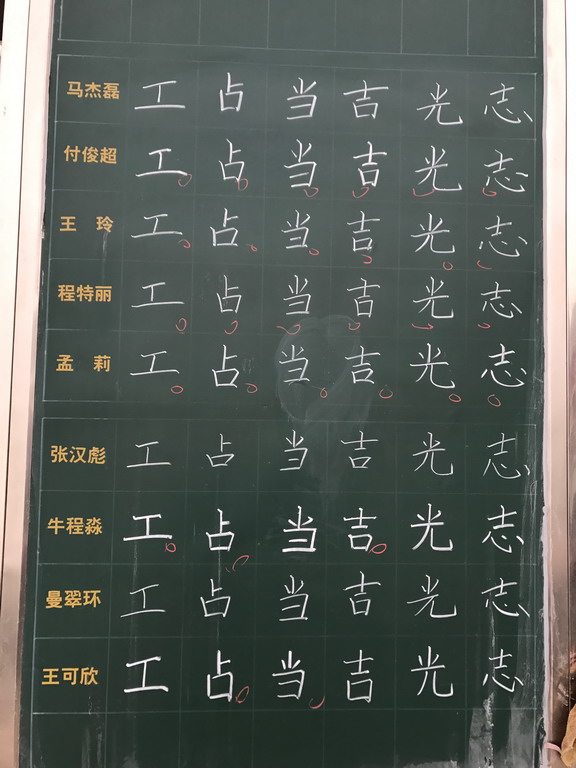 马杰磊 工 占 当 吉 光 志
付俊超 工 占 当 吉 光 志
王 玲 工 占 当 吉 光 志
程特丽 工 占 当 吉 光 志
孟 莉 工 占 当 吉 光 志
张汉彪 工 占 当 吉 光 志
牛程淼 工 占 当 吉 光 志
曼翠环 工 占 当 吉 光 志
王可欣 工 占 当 吉 光 志